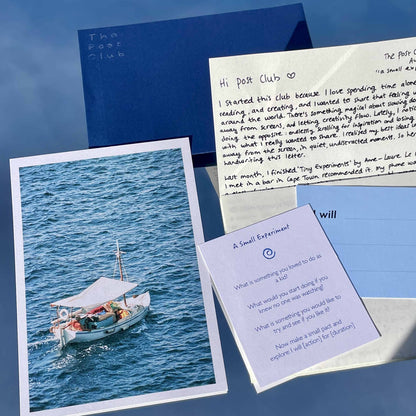 The
Post
Club
The Post C
"a small exp
Hi Post Club ♡
I started this club because I love spending time alone
reading, and creating, and I wanted to share that feeling w
around the world. There's something magical about slowing d
away from screens, and letting creativity flow. Lately, I notic
doing the opposite: endlessly scrolling for inspiration and losing
why I wanted to create. I realised my best ideas
away from the screen, in quiet, undistracted moments. So h
handwriting this letter.
Last month, I finished 'Tiny Experiments' by Anne-Laure Le
I met in a bar in Cape Town recommended it. My phone wa
I will
A Small Experiment
What is something you loved to do as
a kid?
What would you start doing if you
knew no one was watching?
What is something you would like to
try and see if you like it?
Now make a small pact and
explore: I will [action] for [duration]